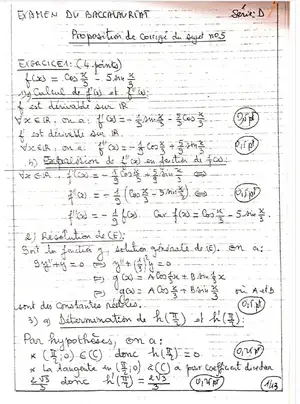 EXAMEN DU BACCALAUREAT Série: D
Proposition de corrigé du sujet no5
EXERCICE1: (4 points)
f(x) = cos x/3 - 5 sin x/3
1) a) Calcul de f'(x) et f''(x):
f est dérivable sur IR
∀x∈IR, on a: f'(x) = -1/3 sin x/3 - 5/3 cos x/3 0,5pt
f' est dérivable sur IR.
∀x∈IR, on a: f''(x) = -1/9 cos x/3 + 5/9 sin x/3 0,5pt
b) Expression de f''(x) en fonction de f(x):
∀x∈IR, f''(x) = -1/9 cos x/3 + 5/9 sin x/3 ⇔
f''(x) = -1/9 (cos x/3 - 5 sin x/3) ⇔
f''(x) = -1/9 f(x). Car f(x) = cos x/3 - 5 sin x/3. 0,5pt
2) Résolution de (E):
Soit la fonction g, solution générale de (E). on a:
9y''+y=0 ⇔ y''+(1/3)²y=0
⇔ g(x) = A cos x/3 + B sin x/3
⇔ g(x) = A cos x/3 + B sin x/3 où A et B
sont des constantes réelles. 0,5pt
3) a) Détermination de h(π/2) et h'(π/2):
Par hypothèses, on a:
* (π/2; 0) ∈ (C) donc h(π/2) = 0 0,25pt
* La tangente en (π/2; 0) à (C) a pour coefficient directeur
2√3/3 donc h'(π/2) = 2√3/3 0,25pt